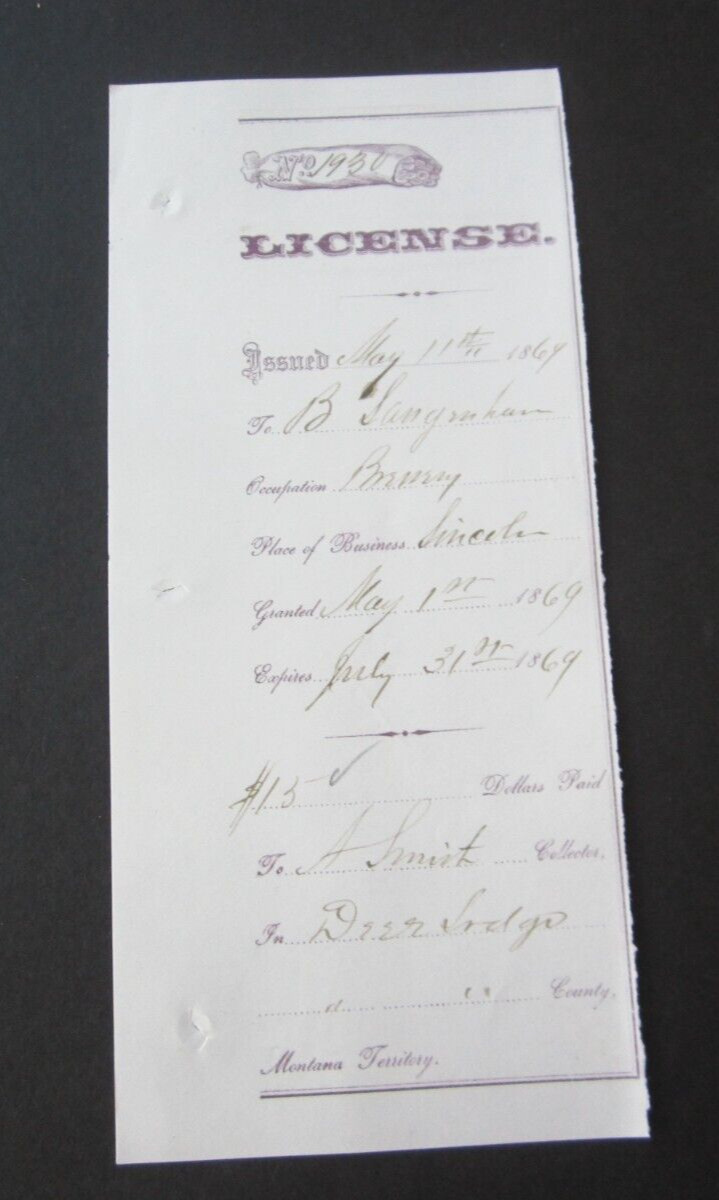 No. 1930
LICENSE.
Issued May 11th 1869
To B
Occupation Brewery
Place of Business Lincoln
Granted May 1st 1869
Expires July 31st 1869
$15 Dollars Paid
To A Smith Collector.
In Deer Lodge
d " County.
Montana Territory.